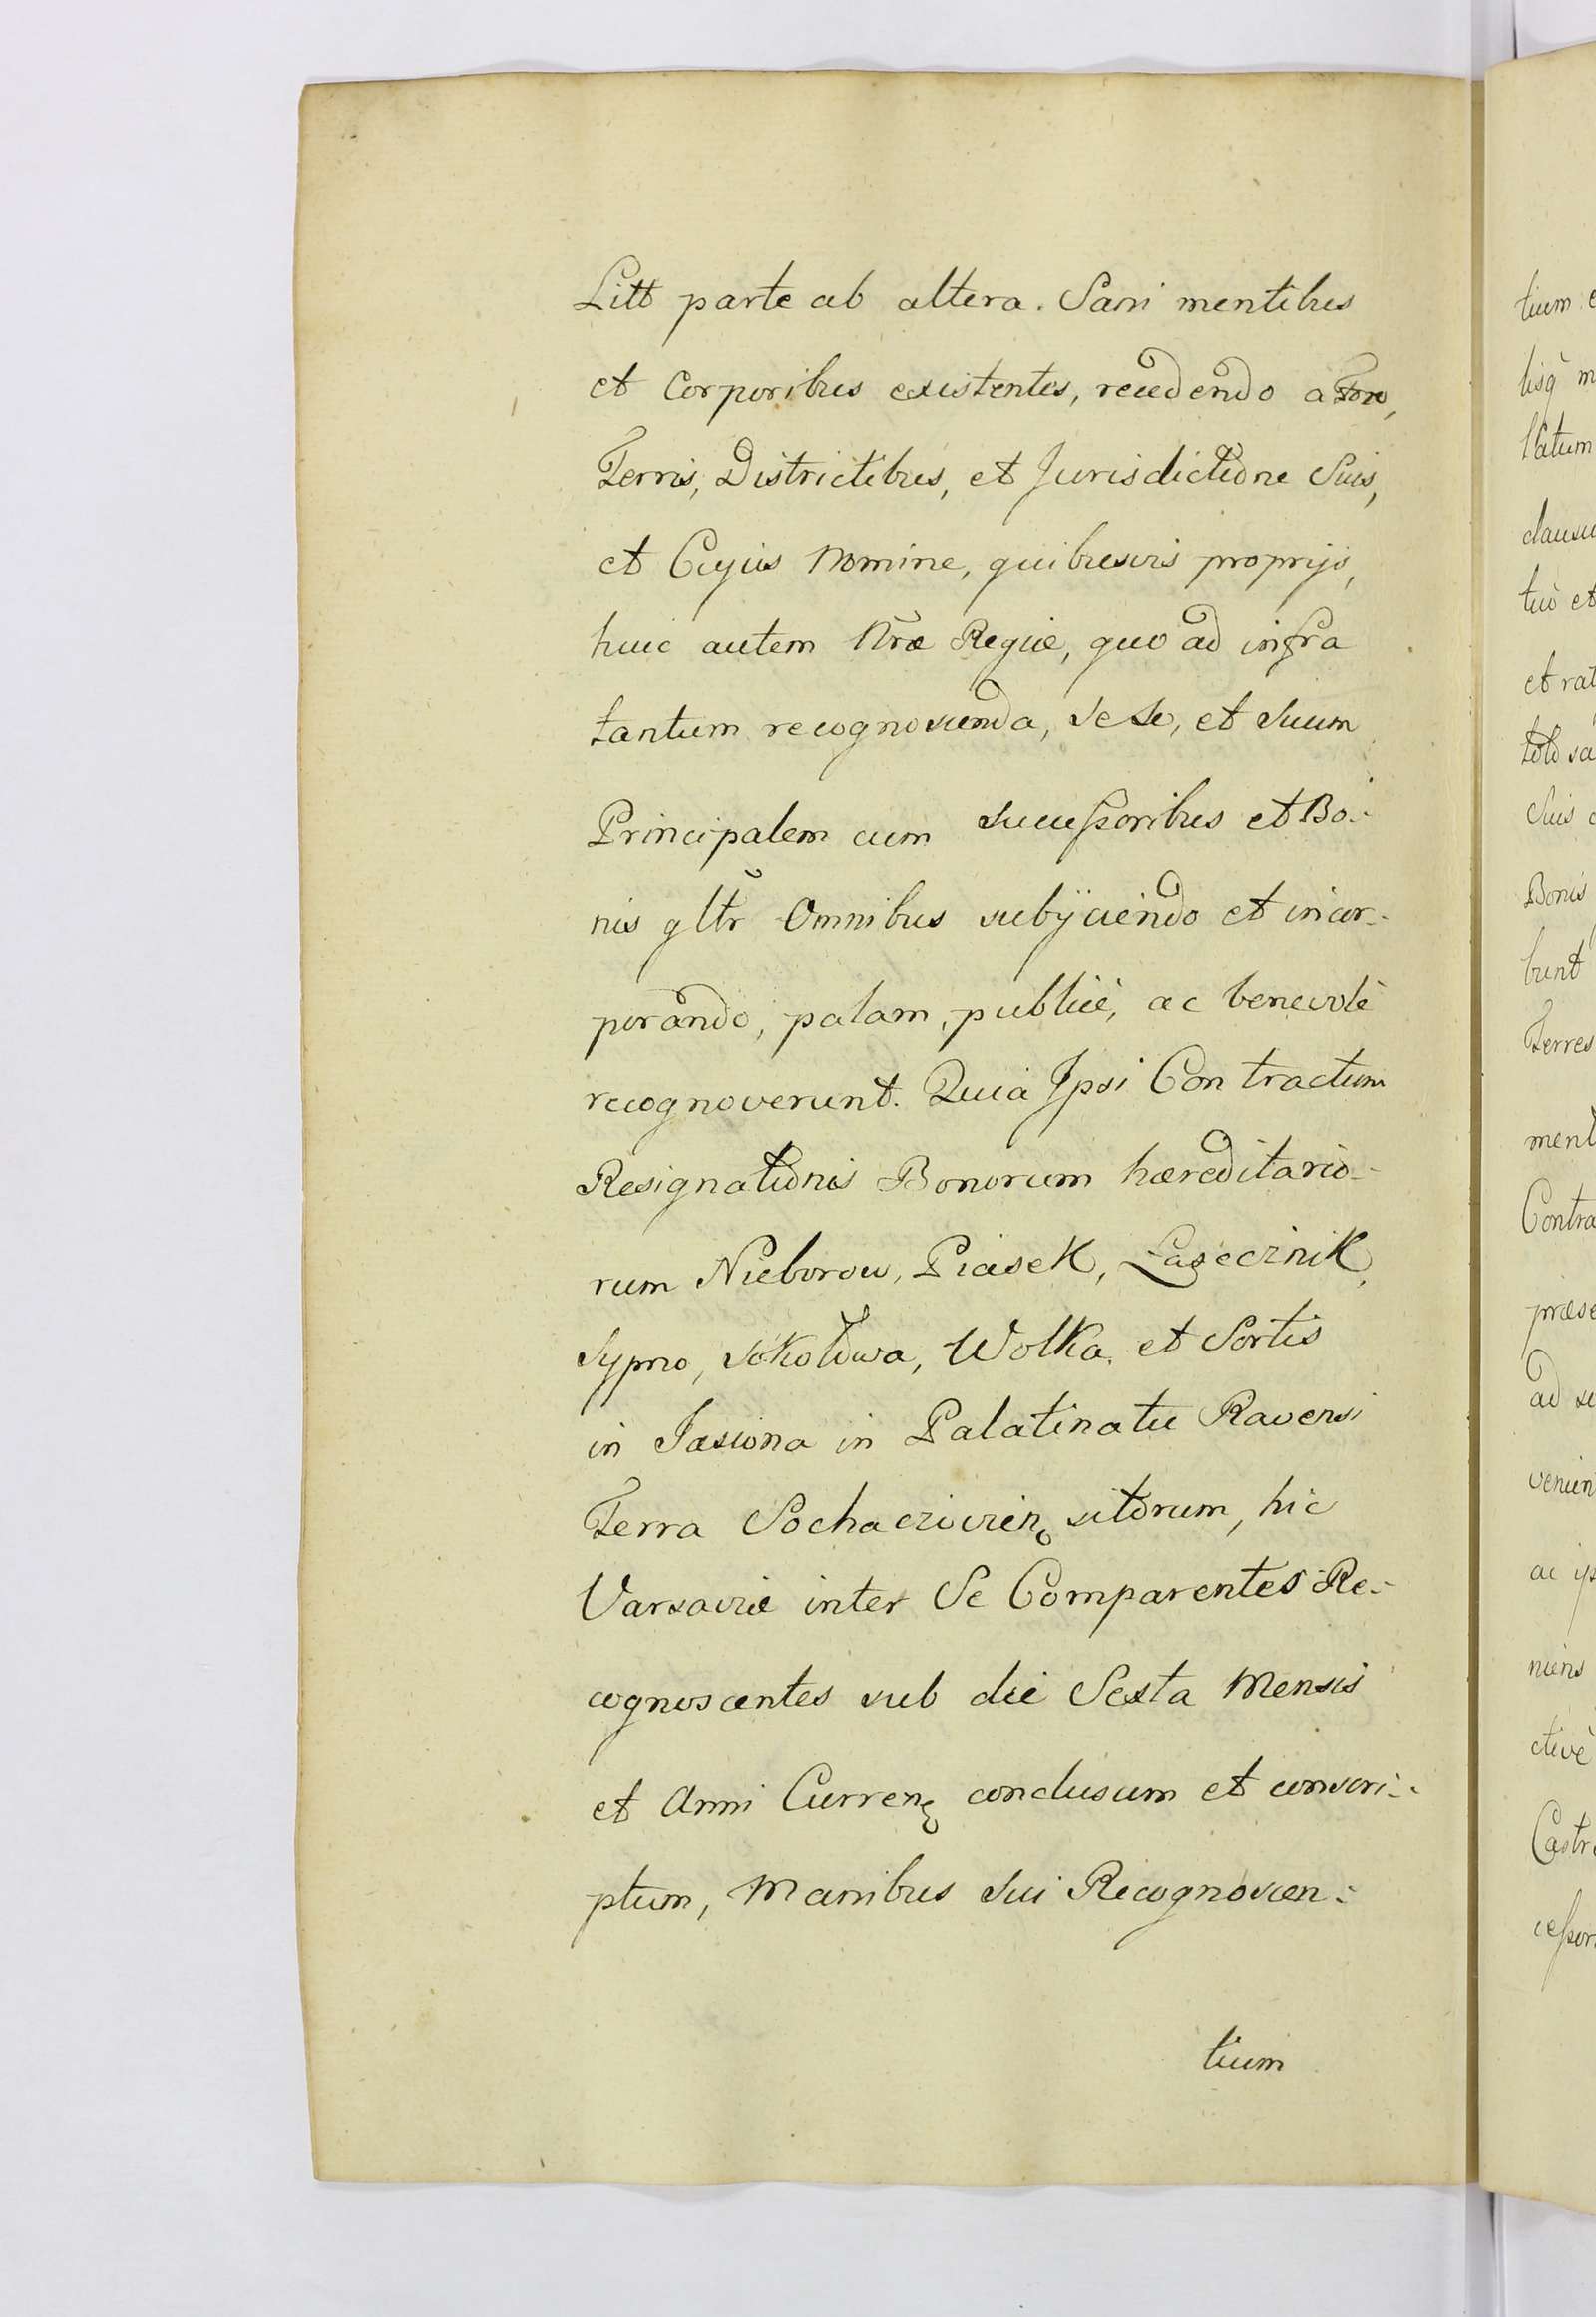 Litt parte ab altera. Sani mentibus
et Corporibus existentes, recedendo a Foro,
Terris, Districtibus, et Jurisdictione Suis,
et Cujus Nomine, quibusvis proprijs,
huic autem Nrae Regiae, quo ad infra
tantum recognoscenda, sese, et suum
Principalem cum successoribus et Bo-
nis gltr Omnibus subijciendo et incor-
porando, palam, publicè, ac benevolè
recognoverunt. Quia Ipsi Contractum
Resignationis Bonorum haereditario-
rum Nieborow, Piasek, Łasiecznik,
Sypno, Sokołowa, Wolka, et Sortis
in Jasiona in Palatinatu Ravensi
Terra Sochaczovien sitorum, hic
Varsaviae inter Se Comparentes Re-
cognoscentes sub die Sexta Mensis
et Anni Curren conclusum et conscri-
ptum, Manibus sui Recognoscen-
tium